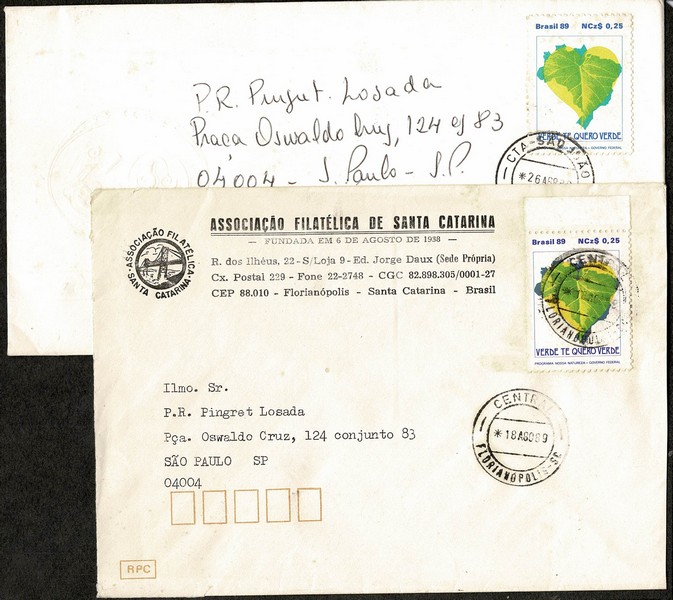 Brasil 89 NCz$ 0,25
VERDE TE QUERO VERDE
PROGRAMA NOSSA NATUREZA - GOVERNO FEDERAL
CTA-SÃO JOÃO
*26 AGO
P.R. Pingret Losada
Praça Oswaldo Cruz, 124 cj 83
04004 - S. Paulo - S.P.
ASSOCIAÇÃO FILATÉLICA
SANTA CATARINA
ASSOCIAÇÃO FILATÉLICA DE SANTA CATARINA
— FUNDADA EM 6 DE AGOSTO DE 1938 —
R. dos Ilhéus, 22-S/Loja 9 - Ed. Jorge Daux (Sede Própria)
Cx. Postal 229 - Fone 22-2748 - CGC 82.898.305/0001-27
CEP 88.010 - Florianópolis - Santa Catarina - Brasil
Brasil 89 NCz$ 0,25
CENTRAL
FLORIANÓPOLIS
VERDE TE QUERO VERDE
PROGRAMA NOSSA NATUREZA - GOVERNO FEDERAL
Ilmo. Sr.
P.R. Pingret Losada
Pça. Oswaldo Cruz, 124 conjunto 83
SÃO PAULO SP
04004
CENTRAL
*18 AGO 89
FLORIANÓPOLIS-SC
RPC